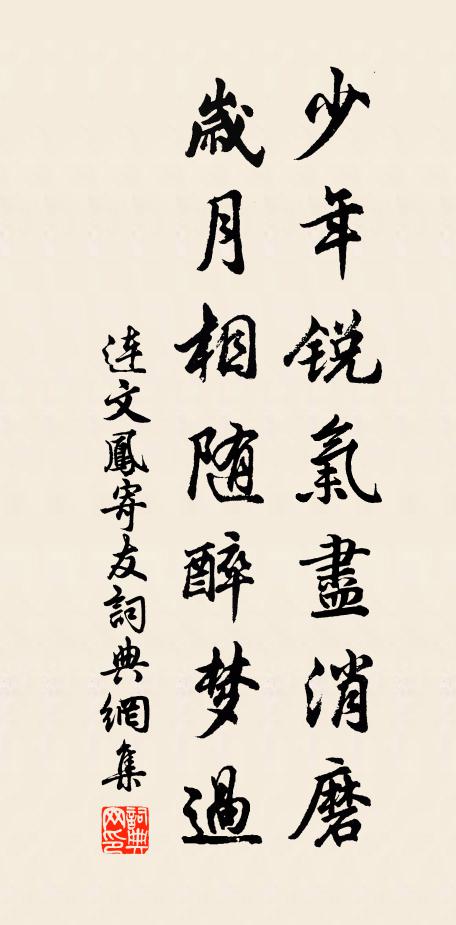 少年锐氣盡消磨
歲月相随醉梦過
连文鳳寄友詞典網集
詞典网印